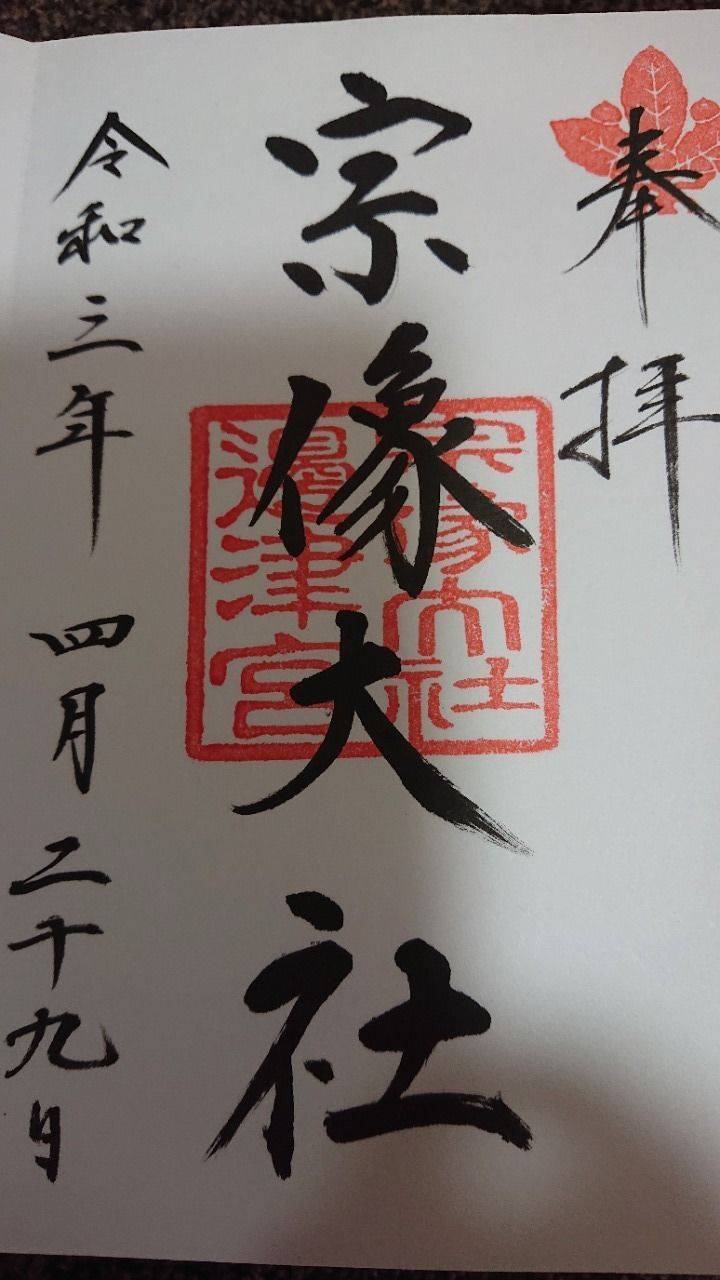 奉拝
宗像大社
宗像大社
邊津宮
令和三年 四月二十九日